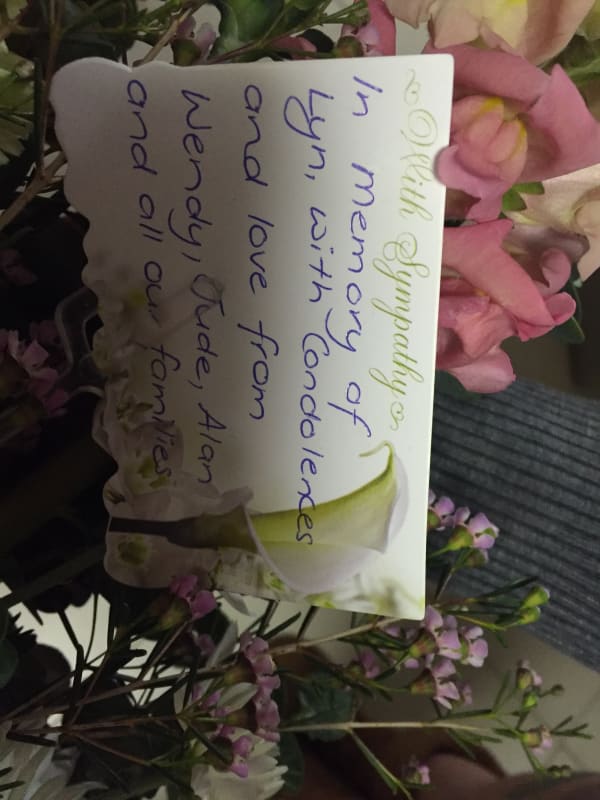 With Sympathy
In memory of
Lyn, with Condolences
and love from
Wendy, Jude, Alan
and all our families